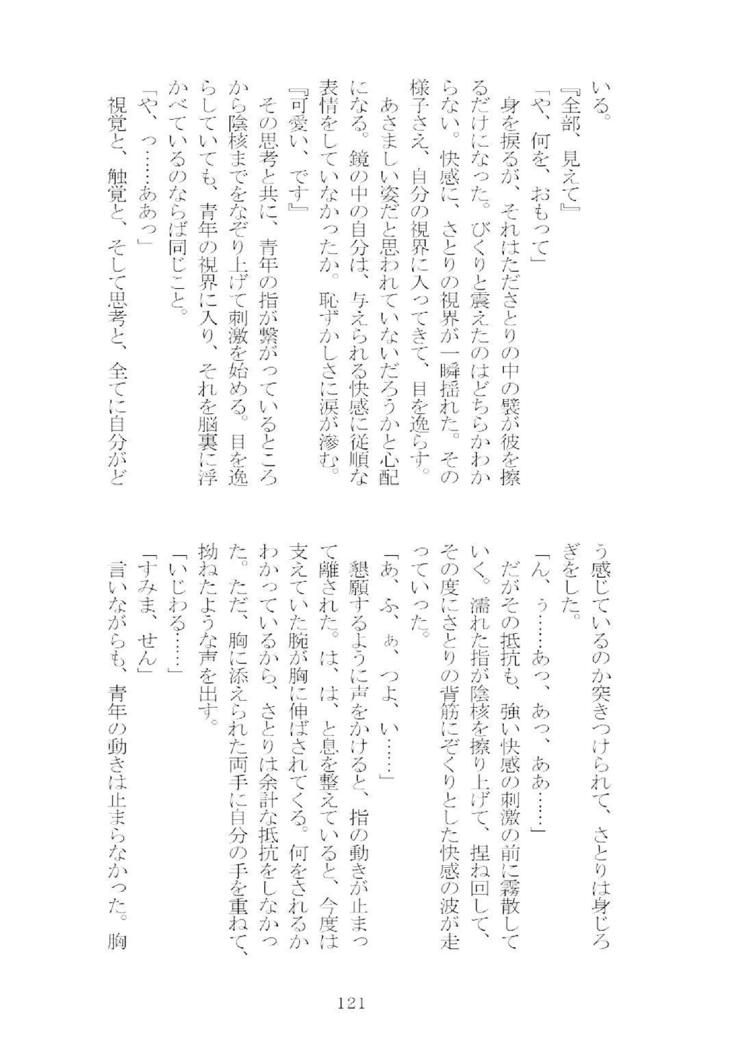 いる。
『全部、見えて』
「や、何を、おもって」
身を捩るが、それはたださとりの中の襞が彼を擦
るだけになった。びくりと震えたのはどちらかわか
らない。快感に、さとりの視界が一瞬揺れた。その
様子さえ、自分の視界に入ってきて、目を逸らす。
あさましい姿だと思われていないだろうかと心配
になる。鏡の中の自分は、与えられる快感に従順な
表情をしていなかったか。恥ずかしさに涙が滲む。
『可愛い、です』
その思考と共に、青年の指が繋がっているところ
から陰核までをなぞり上げて刺激を始める。目を逸
らしていても、青年の視界に入り、それを脳裏に浮
かべているのならば同じこと。
「や、っ……ああっ」
視覚と、触覚と、そして思考と、全てに自分がど
う感じているのか突きつけられて、さとりは身じろ
ぎをした。
「ん、ぅ……あっ、あっ、ああ……」
だがその抵抗も、強い快感の刺激の前に霧散して
いく。濡れた指が陰核を擦り上げて、捏ね回して、
その度にさとりの背筋にぞくりとした快感の波が走
っていった。
「あ、ふ、ぁ、つよ、い……」
懇願するように声をかけると、指の動きが止まっ
て離された。は、は、と息を整えていると、今度は
支えていた腕が胸に伸ばされてくる。何をされるか
わかっているから、さとりは余計な抵抗をしなかっ
た。ただ、胸に添えられた両手に自分の手を重ねて、
拗ねたような声を出す。
「いじわる……」
「すみま、せん」
言いながらも、青年の動きは止まらなかった。胸
121